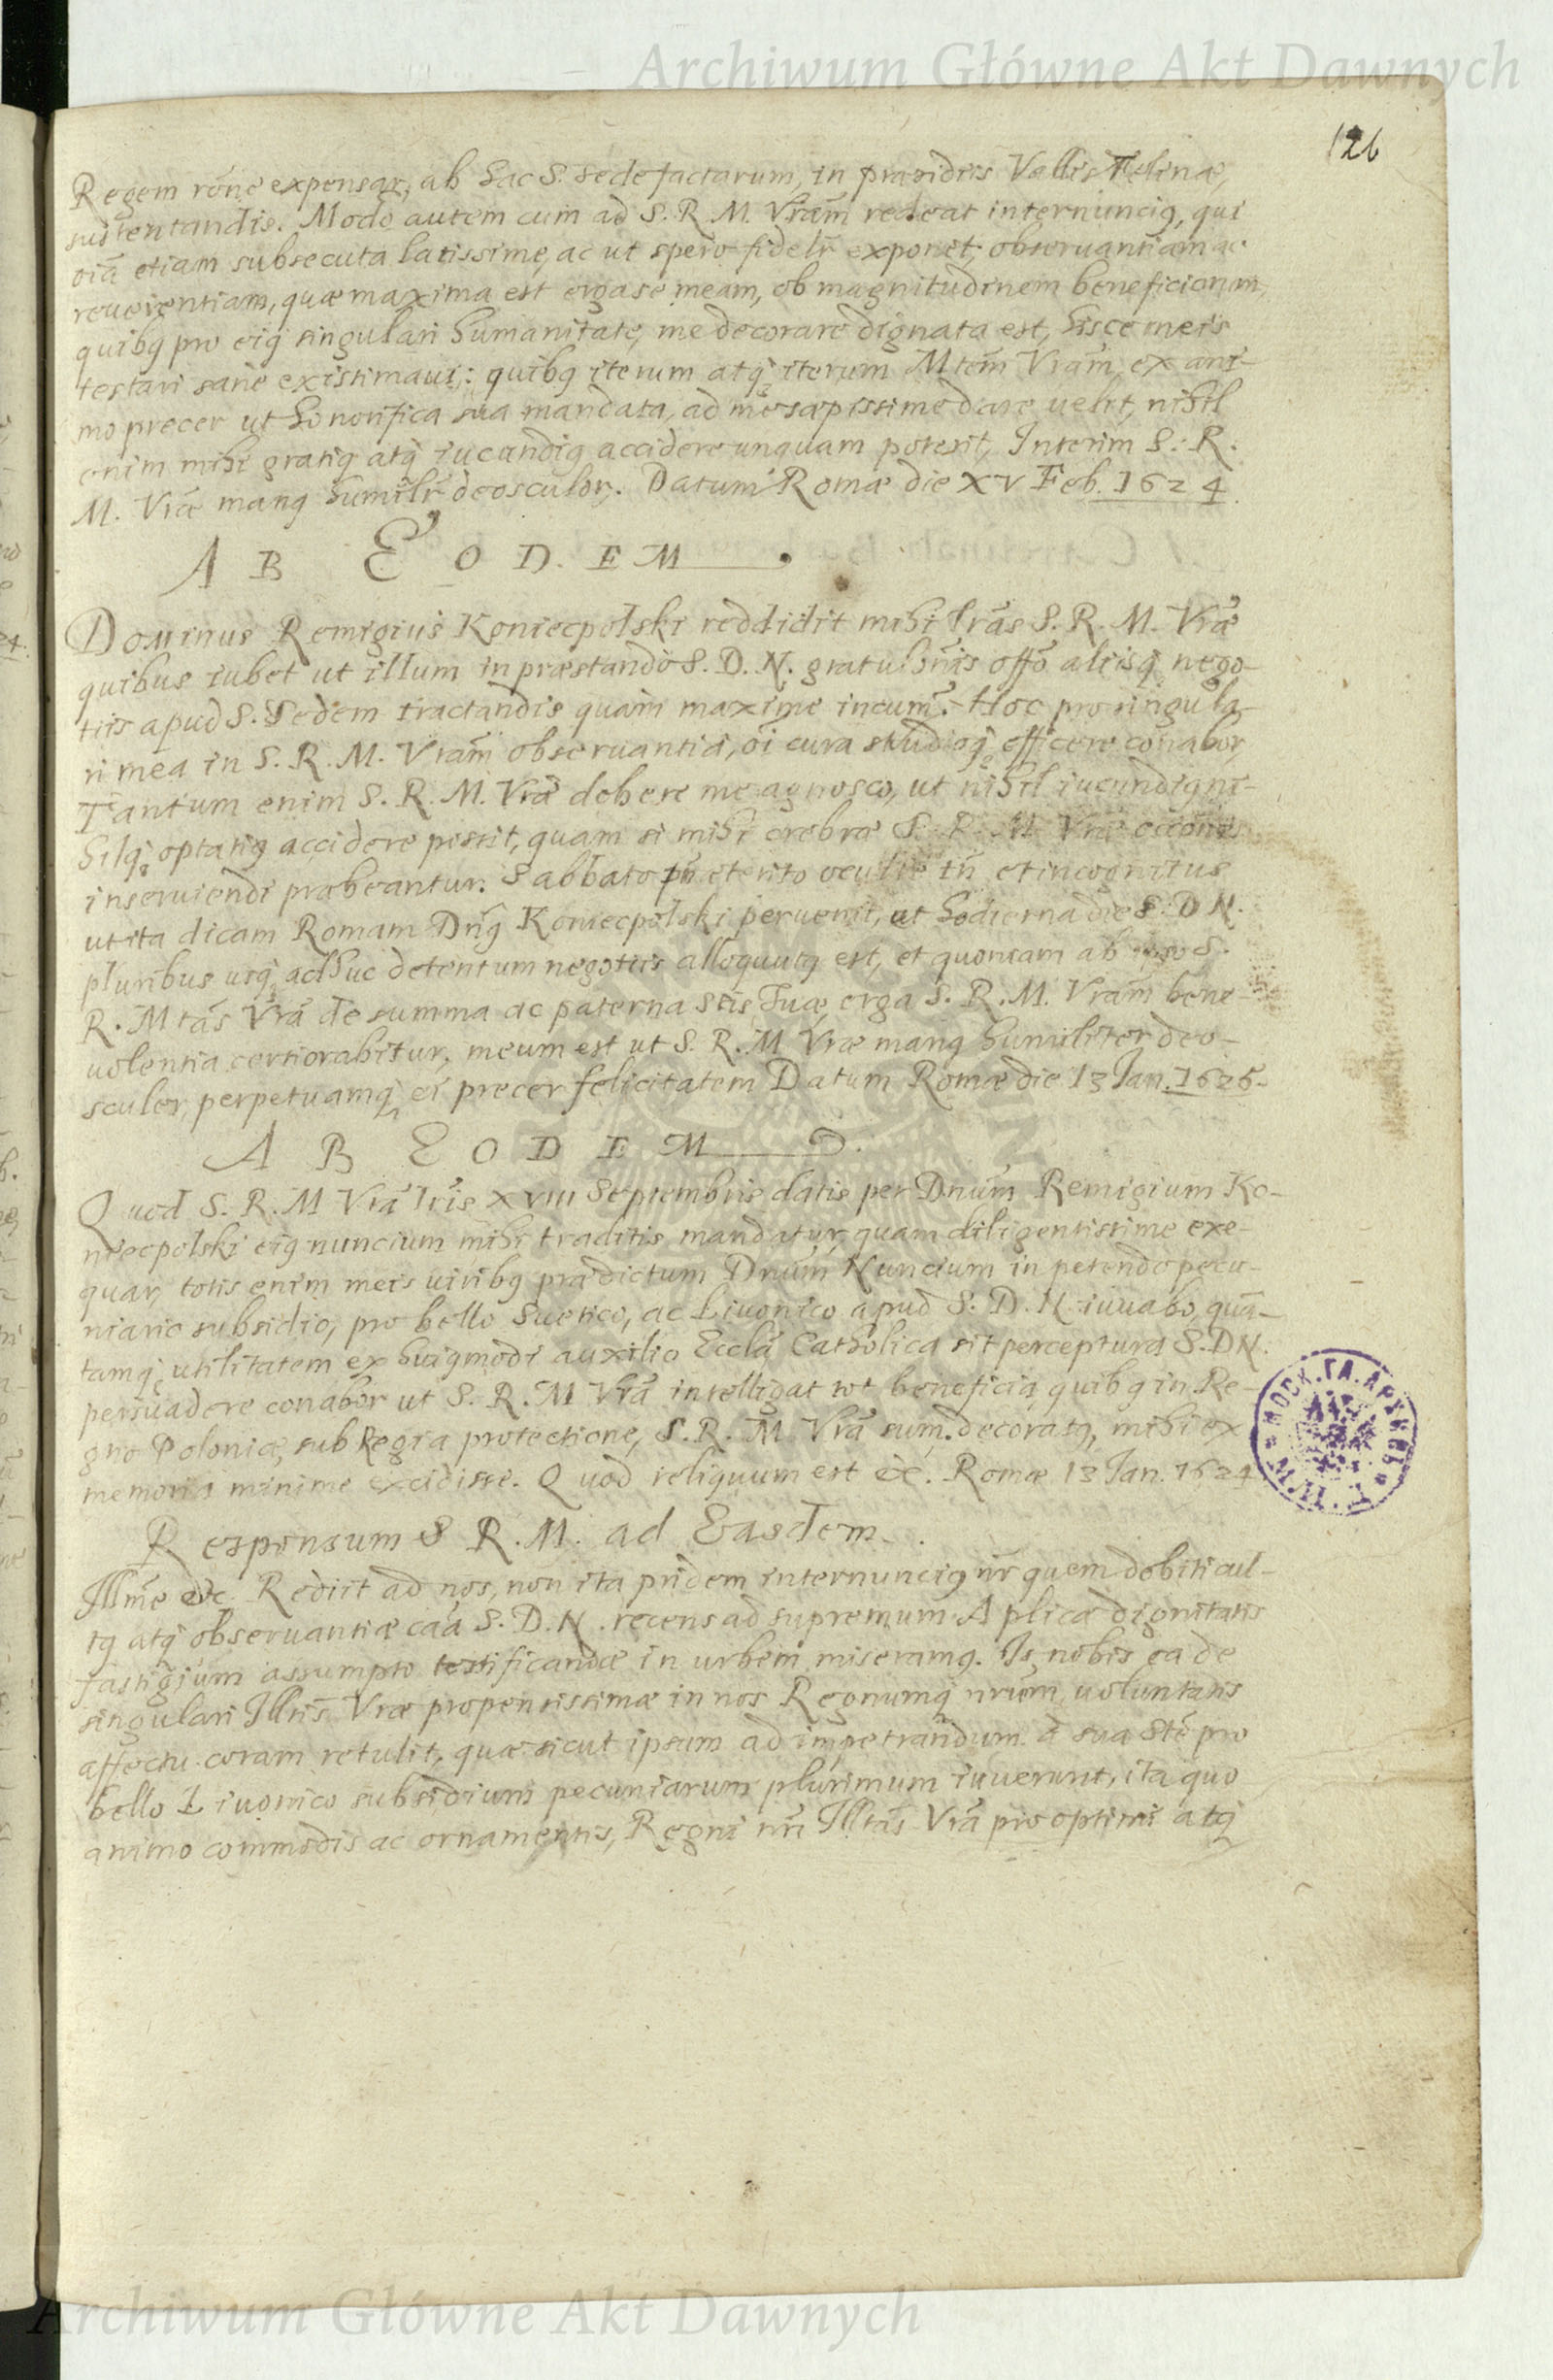 Archiwum Główne Akt Dawnych
126
Regem rōne expensar, ab hac S. Sede factarum, in præsidiis Vallis Telinæ,
sustentandis. Modo autem cum ad S. R. M. Vrām redeat internunciꝰ, qui
oīa etiam subsecuta latissime, ac ut spero fidelr̄ exponet, obseruantiam ac
reuerentiam, quæ maxima est erga se meam, ob magnitudinem beneficiorum,
quibꝰ pro eiꝰ singulari humanitate, me decorare dignata est, hisce meis
testari sane existimaui: quibꝰ iterum atqꝫ iterum Mtem̄ Vrām ex ani-
mo precer ut honorifica sua mandata, ad me sæpissime dare uelit, nihil
enim mihi gratiꝰ atqꝫ iucundiꝰ accidere unquam poterit, Interim S. R.
M. Vrǣ manꝰ humilr̄ deosculor. Datum Romæ die XV Feb. 1624.
AB EODEM
Dominus Remigius Koniecpolski reddidit mihi lrās S. R. M. Vrǣ
quibus iubet ut illum in præstando S. D. N. gratulōnis offō aliisqꝫ nego-
tiis apud S. Sedem tractandis quam maxime
Hoc pro singula-
ri mea in S. R. M. Vrām obseruantia, oī cura studioqꝫ efficere conabor,
Tantum enim S. R. M. Vrǣ debere me agnosco, ut nihil iucundiꝰ ni-
hilqꝫ optatiꝰ accidere possit, quam si mihi crebræ S. R. M. Vræ occōnes
inseruiendi præbeantur. Sabbato præterito occulte tn̄ et incognitus
ut ita dicam Romam Dnꝰ Koniecpolski peruenit, ut hodierna die S. D. N.
pluribus usqꝫ adhuc detentum negotiis alloquutꝰ est, et quoniam ab ipso S.
R. Mtās Vrā de summa ac paterna Stis Suæ, erga S. R. M. Vrām bene-
uolentia certiorabitur, meum est ut S. R. M. Vræ manꝰ humiliter deo-
sculer, perpetuamqꝫ ei precer felicitatem Datum Romæ die 13 Jan. 1625.
AB EODEM
Quod S. R. M Vrā lris XVIII Septembris datis per Dnum̄ Remigium Ko-
niecpolski eiꝰ nuncium mihi traditis mandatur, quam diligentissime exe-
quar, totis enim meis uiribꝰ prædictum Dnum̄ Nuncium in petendo pecu-
niario subsidio, pro bello Suetico, ac Liuonico apud S. D. N. iuuabo, quan-
tamqꝫ utilitatem ex huiꝰmodi auxilio Ecclā Catholica sit perceptura S. D N.
persuadere conabor ut S. R. M Vrā intelligat tot beneficia quibꝰ in Re-
gno Poloniæ, sub Regia protectione, S. R. M Vrā sum decoratꝰ, mihi ex
memoria minime excidisse. Quod reliquum est &c. Romæ 13 Jan. 1624
Responsum S R. M. ad Easdem.
Illme &c Rediit ad nos, non ita pridem internunciꝰ nr̄ quem debiti cul-
tꝰ atqꝫ obseruantiæ caā S. D. N. recens ad supremum Aplicæ dignitatis
fastigium assumpto testificandæ in urbem miseramꝰ. Is nobis ea de
singulari Illtis̄ Vræ propensissimæ in nos Regnumqꝫ nrum̄ uoluntatis
affectu coram retulit, quæ sicut ipsum ad impetrandum a sua Ste pro
bello Liuonico subsidium pecuniarum plurimum iuuerunt, ita quo
animo commodis ac ornamentis, Regni nri Illtās Vrā pro optimi atqꝫ
МОСК. ГЛ. АРХИВЪ
Archiwum Główne Akt Dawnych